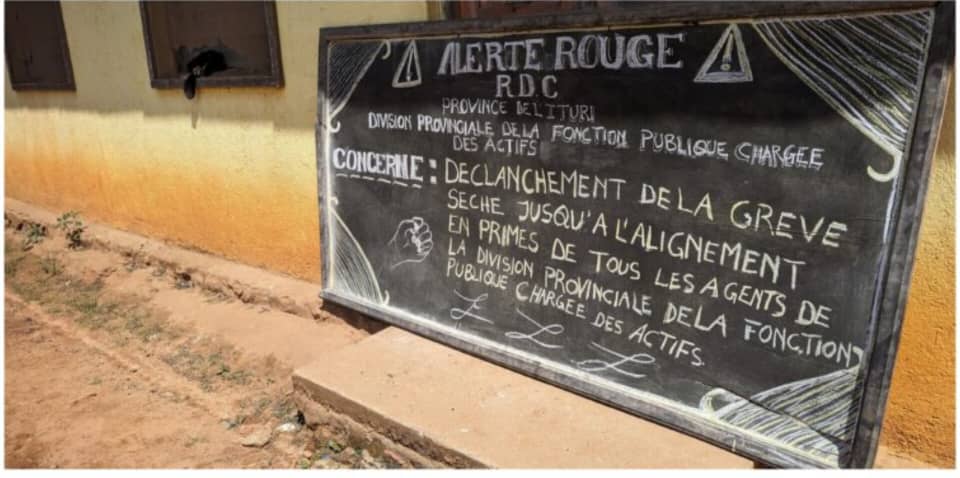 ALERTE ROUGE
R.D.C
PROVINCE DE L'ITURI
DIVISION PROVINCIALE DE LA FONCTION PUBLIQUE CHARGEE
DES ACTIFS
CONCERNE : DECLANCHEMENT DE LA GREVE
SECHE JUSQU'A L'ALIGNEMENT
EN PRIMES DE TOUS LES AGENTS DE
LA DIVISION PROVINCIALE DE LA FONCTION
PUBLIQUE CHARGEE DES ACTIFS.